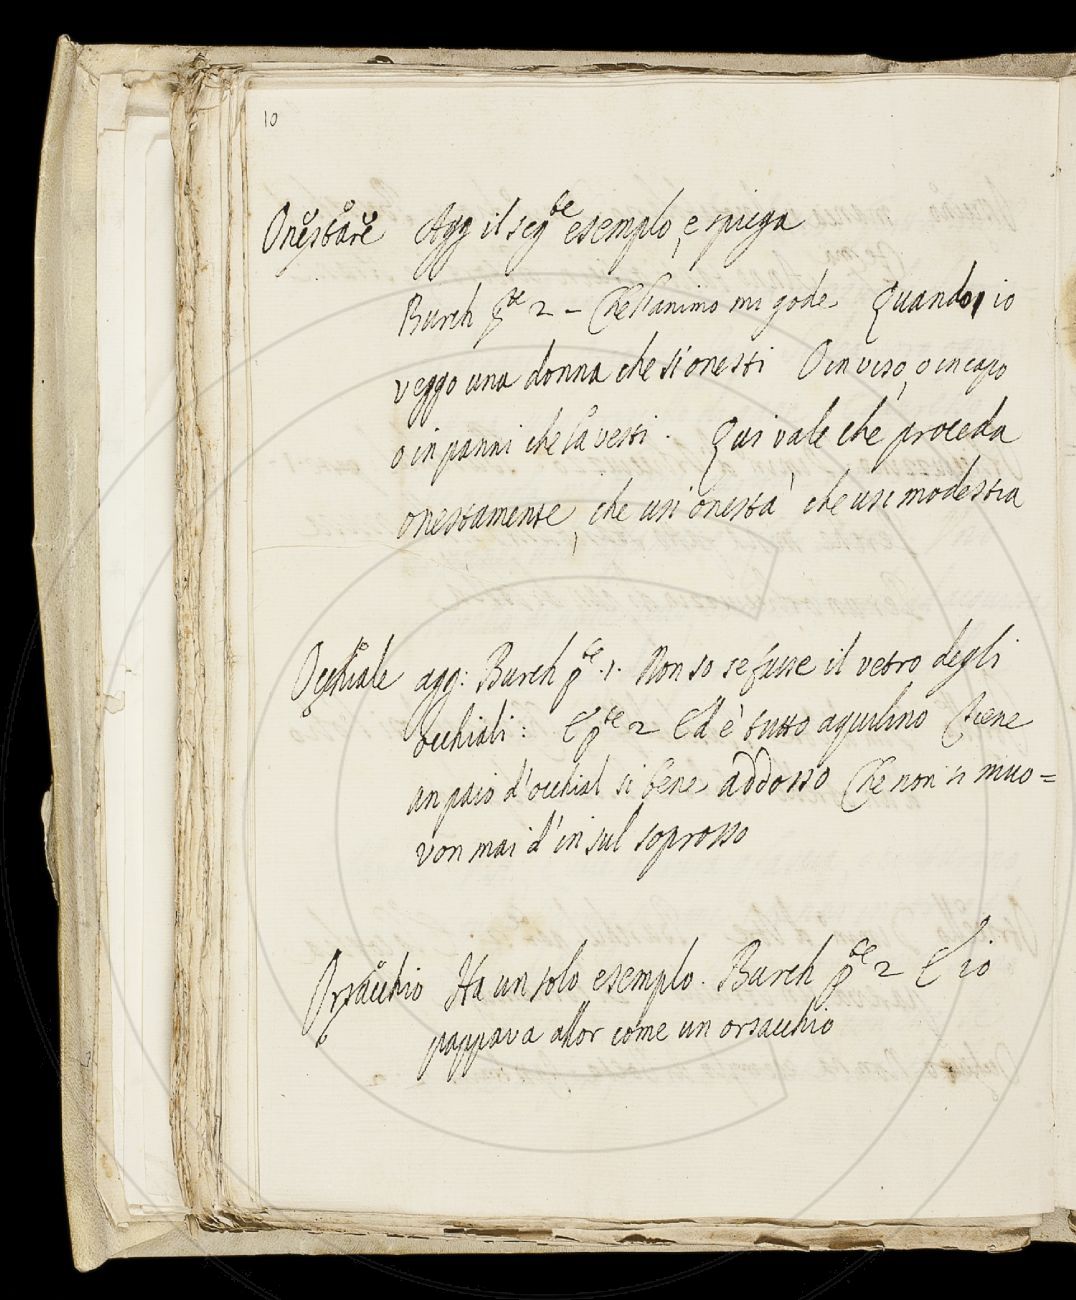 10
Onestare Agg il seg.te esemplo, e spiega
Burch p.te 2 – Che l'animo mi gode Quando io
veggo una donna che s'onesti O in viso, o in capo
o in panni che la vesti. Qui vale che proceda
onestamente, che usi onestà che usi modestia
Occhiale agg: Burch p.te 1. Non so se fusse il vetro degli
occhiali: E p.te 2 Ed è tutto aquilino E tiene
un paio d'occhial si bene addosso Che non si muo=
von mai d'in sul soprosso
Orsacchio Ha un solo esemplo. Burch p.te 2 E io
pappava allor come un orsacchio